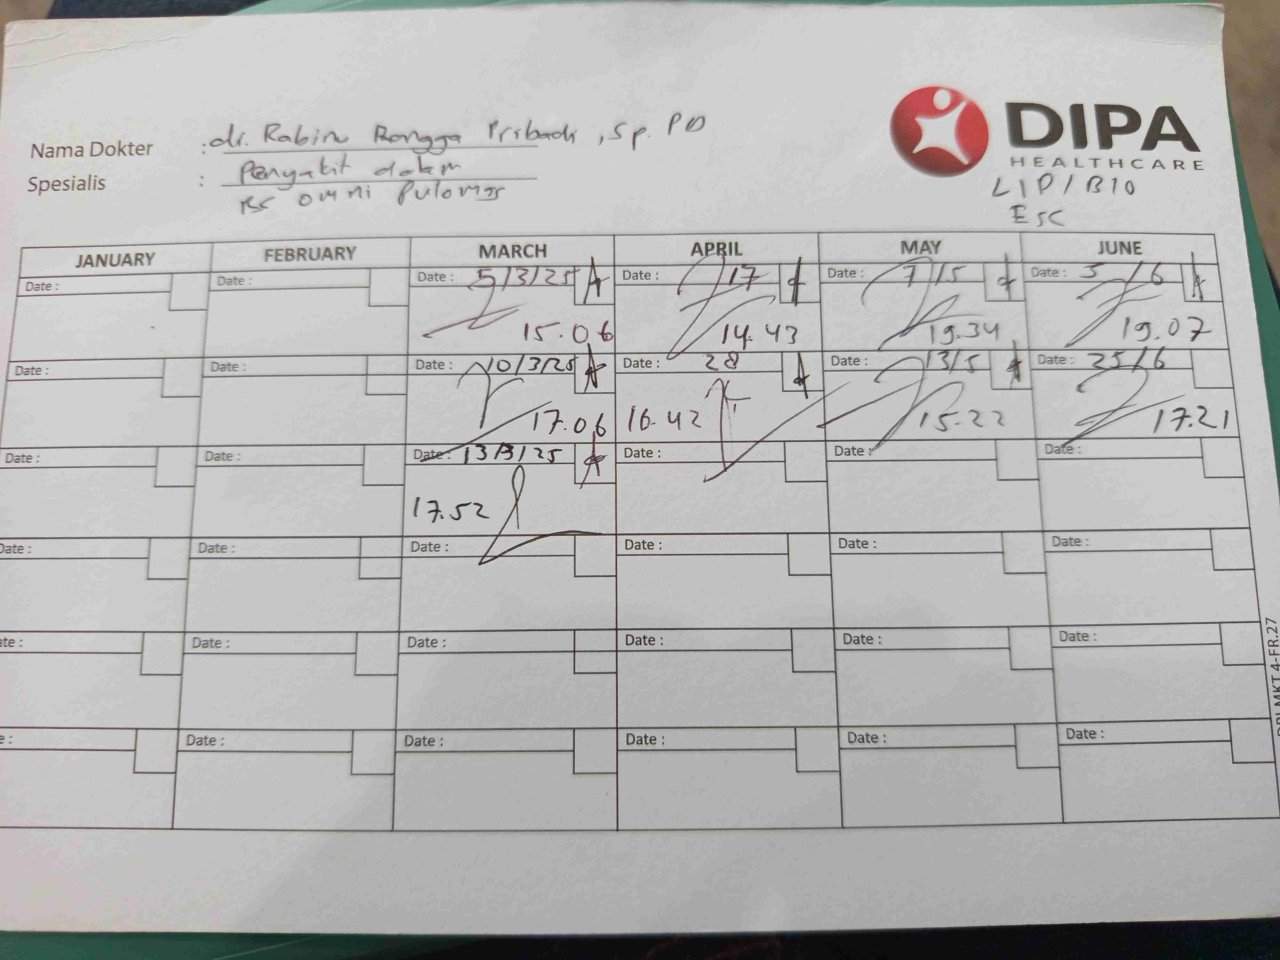 DIPA
HEALTHCARE
LIP/B10
Esc
Nama Dokter : dr. Rabin Rangga Pribadi, Sp. PD
Spesialis : Penyakit dalam
RS omni Pulomas
JANUARY FEBRUARY MARCH APRIL MAY JUNE
Date : Date : Date : 5/3/25 Date : 17 Date : 7/5 Date : 3/6
15.06 14.43 19.34 19.07
Date : Date : Date : 10/3/25 Date : 28 Date : 13/5 Date : 25/6
17.06 16.42 15.22 17.21
Date : Date : Date : 13/3/25 Date : Date : Date :
17.52
Date : Date : Date : Date : Date : Date :
ate : Date : Date : Date : Date : Date :
e : Date : Date : Date : Date : Date :
MKT 4-FR.27